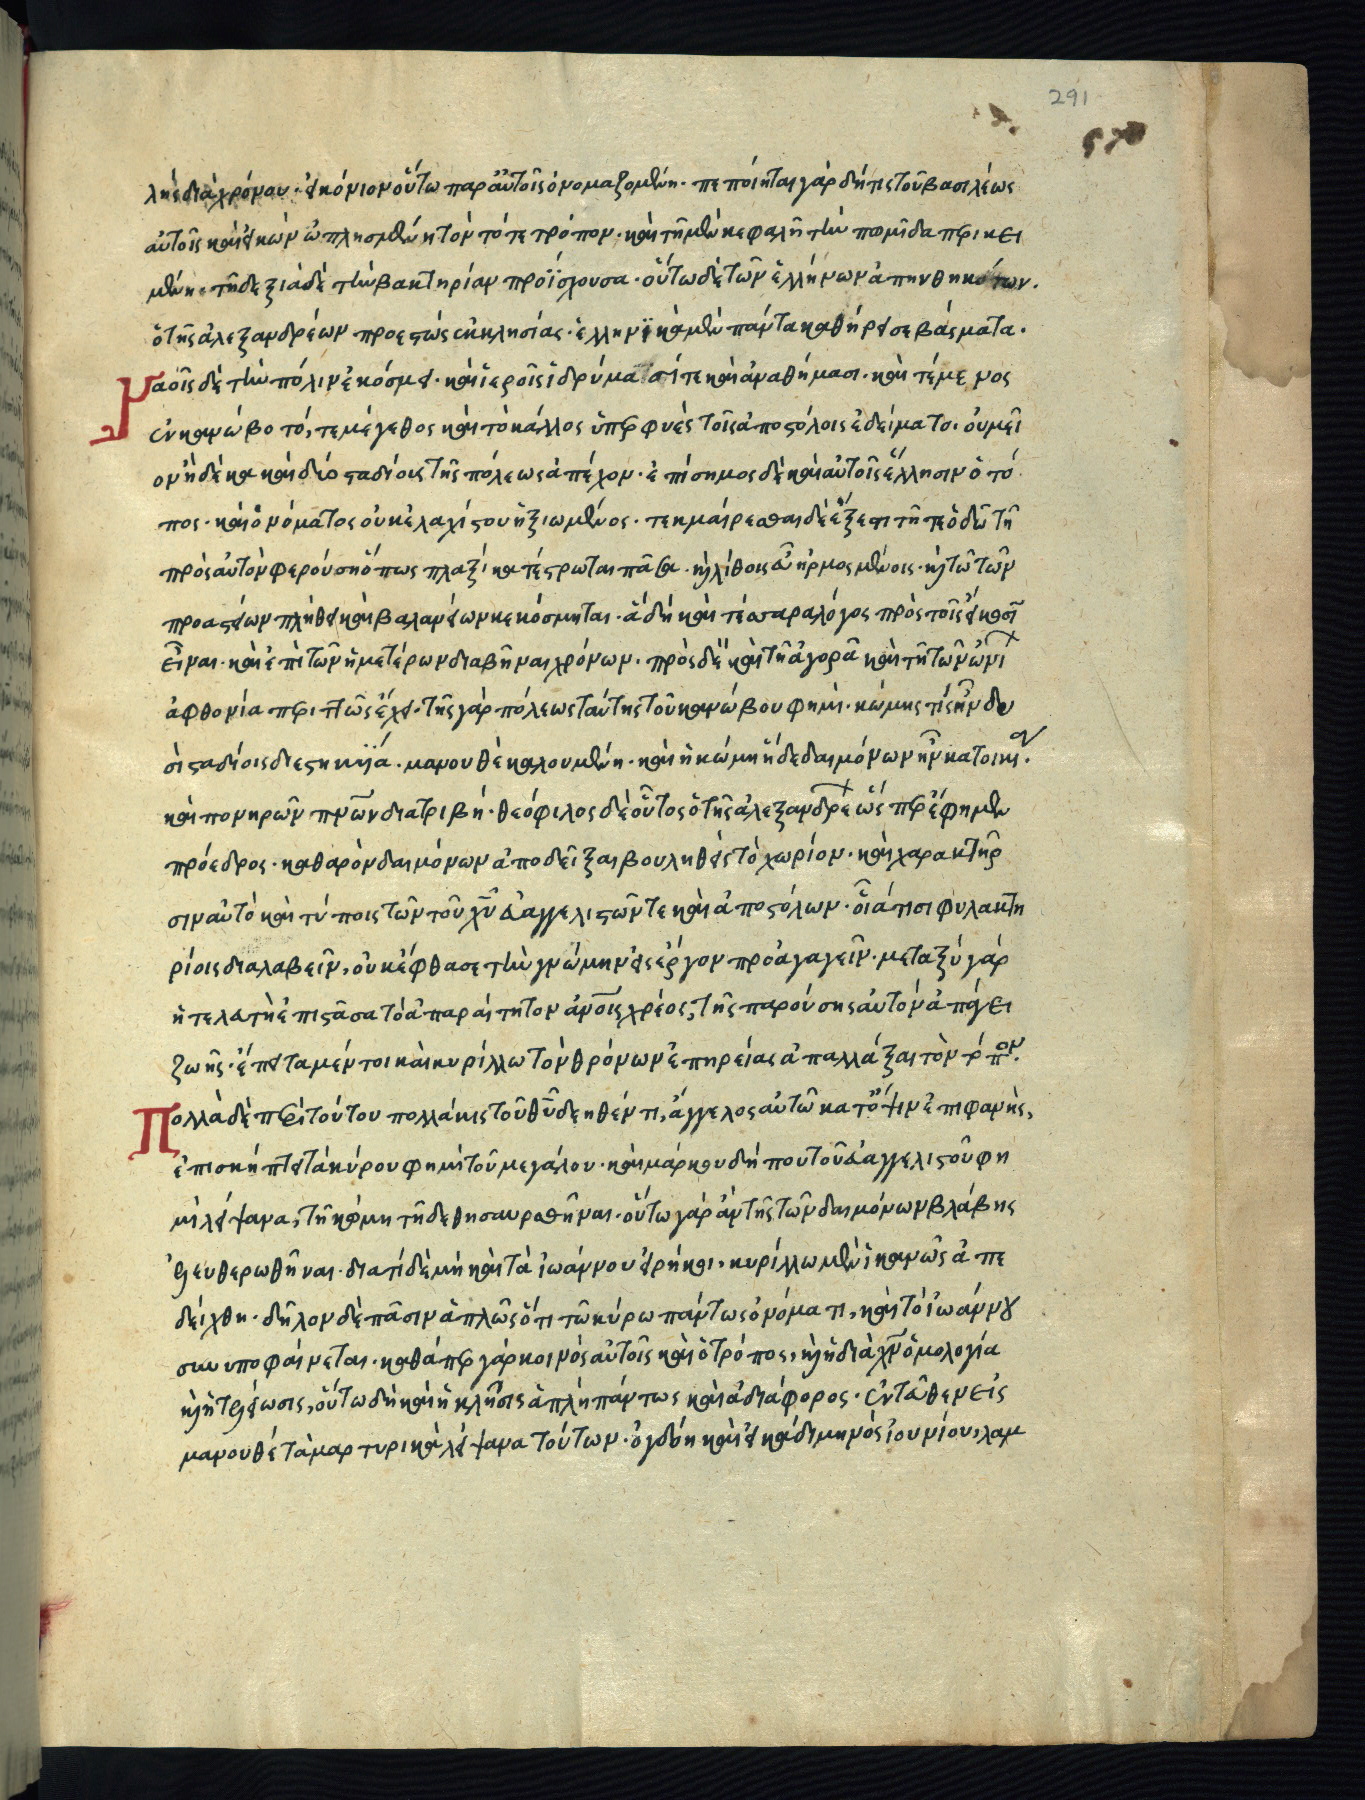 291
570
λῆς διὰ χρόνου· εἰκόνιον οὕτω παρ' αὐτοῖς ὀνομαζομένη· πεποίηται γὰρ δή τις τοῦ βασιλέως
αὐτοῖς καὶ εἰκὼν ὡπλισμένη τὸν τότε τρόπον· καὶ τῇ μὲν κεφαλῇ τὴν πσμῖδα περικει
μένη· τῇ δεξιᾷ δὲ τὴν βακτηρίαν προΐσχουσα· οὕτω δὲ τῶν ἑλλήνων ἀπηνθηκότων·
ὁ τῆς ἀλεξανδρέων προεστὼς ἐκκλησίας· ἑλληνικὰ μὲν πάντα καθήρει σεβάσματα·
Ναοῖς δὲ τὴν πόλιν ἐκόσμει· καὶ ἱεροῖς ἱδρύμασί τε καὶ ἀναθήμασι· καὶ τέμενος
ἐν κανώβῳ τό, τε μέγεθος καὶ τὸ κάλλος ὑπερφυὲς τοῖς ἀποστόλοις ἐδείματο· οὐ μεῖ
ον ἢ δέκα καὶ δύο σταδίοις τῆς πόλεως ἀπέχον· ἐπίσημος δὲ καὶ αὐτοῖς ἕλλησιν ὁ τό
πος· καὶ ὀνόματος οὐκ ἐλαχίστου ἠξιωμένος· τεκμαίρεσθαι δὲ ἔξεστι τῇ τε ὁδῷ τῇ
πρὸς αὐτὸν φερούσῃ ὅπως πλαξὶ κατέστρωται πᾶσα· καὶ λίθοις εὖ ἡρμοσμένοις· καὶ τῷ τῶν
προαστείων πλήθει καὶ βαλανείων κεκόσμηται· ἃ δὴ καὶ τέσσαρα λόγος πρὸς τοῖς εἴκοσι
εἶναι· καὶ ἐπὶ τῶν ἡμετέρων διαβῆναι χρόνων· πρὸς δὲ καὶ τῇ ἀγορᾷ καὶ τῇ τῶν ὠνίων
ἀφθονίᾳ περιττῶς ἔχει· τῆς γὰρ πόλεως ταύτης τοῦ κανώβου φημὶ· κώμης τίς ἦν δυ
σὶ σταδίοις διεστηκυῖά· μανουθὲ καλουμένη· καὶ ἡ κώμη ἥδε δαιμόνων ἦν κατοικία·
καὶ πονηρῶν πνευμάτων διατριβή· θεόφιλος δὲ οὗτος ὁ τῆς ἀλεξανδρέων ὡς προέφημεν
πρόεδρος· καθαρὸν δαιμόνων ἀποδεῖξαι βουληθεὶς τὸ χωρίον· καὶ χαρακτῆρ
σιν αὐτὸ καὶ τύποις τῶν τοῦ χυ εὐαγγελιστῶν τε καὶ ἀποστόλων· οἷά τισι φυλακτη
ρίοις διαλαβεῖν, οὐκ ἔφθασε τὴν γνώμην εἰς ἔργον προαγαγεῖν· μεταξὺ γάρ
ἡ τελευτὴ ἐπιστᾶσα τὸ ἀπαραίτητον ἀνοις χρέος, τῆς παρούσης αὐτὸν ἀπάγει
ζωῆς· ἔπειτα μέν τοι καὶ κυρίλλῳ τὸν θρόνων ἐπηρείας ἀπαλλάξαι τὸν τόπον·
Πολλὰ δὲ περὶ τούτου πολλάκις τοῦ θῦ δεηθέντι, ἄγγελος αὐτῷ κατ' ὄψιν ἐπιφανεὶς,
ἐπισκήπτει τὰ κύρου φημὶ τοῦ μεγάλου· καὶ μάρκου δή που τοῦ εὐαγγελιστοῦ φη
μὶ λείψανα, τῇ κώμῃ τῇδε θησαυρισθῆναι· οὕτω γὰρ ἂν τῆς τῶν δαιμόνων βλάβης
ἐλευθερωθῆναι· διατί δὲ μὴ καὶ τὰ ἰωάννου εἰρήκει, κυρίλλῳ μὲν ἱκανῶς ἀπε
δείχθη· δῆλον δὲ πᾶσιν ἁπλῶς ὅτι τῷ κύρῳ πάντως ὀνόματι, καὶ τὸ ἰωάννου
συνυποφαίνεται· καθάπερ γὰρ κοινὸς αὐτοῖς καὶ ὁ τρόπος, καὶ ἡ διὰ χν ὁμολογία
καὶ ἡ τελείωσις, οὕτω δὴ καὶ ἡ κλῆσις ἁπλῆ πάντως καὶ ἀδιάφορος· ἐντεῦθεν εἰς
μανουθὲ τὰ μαρτυρικὰ λείψανα τούτων· ὀγδόῃ καὶ εἰκάδι μηνὸς ἰουνίου, λαμ